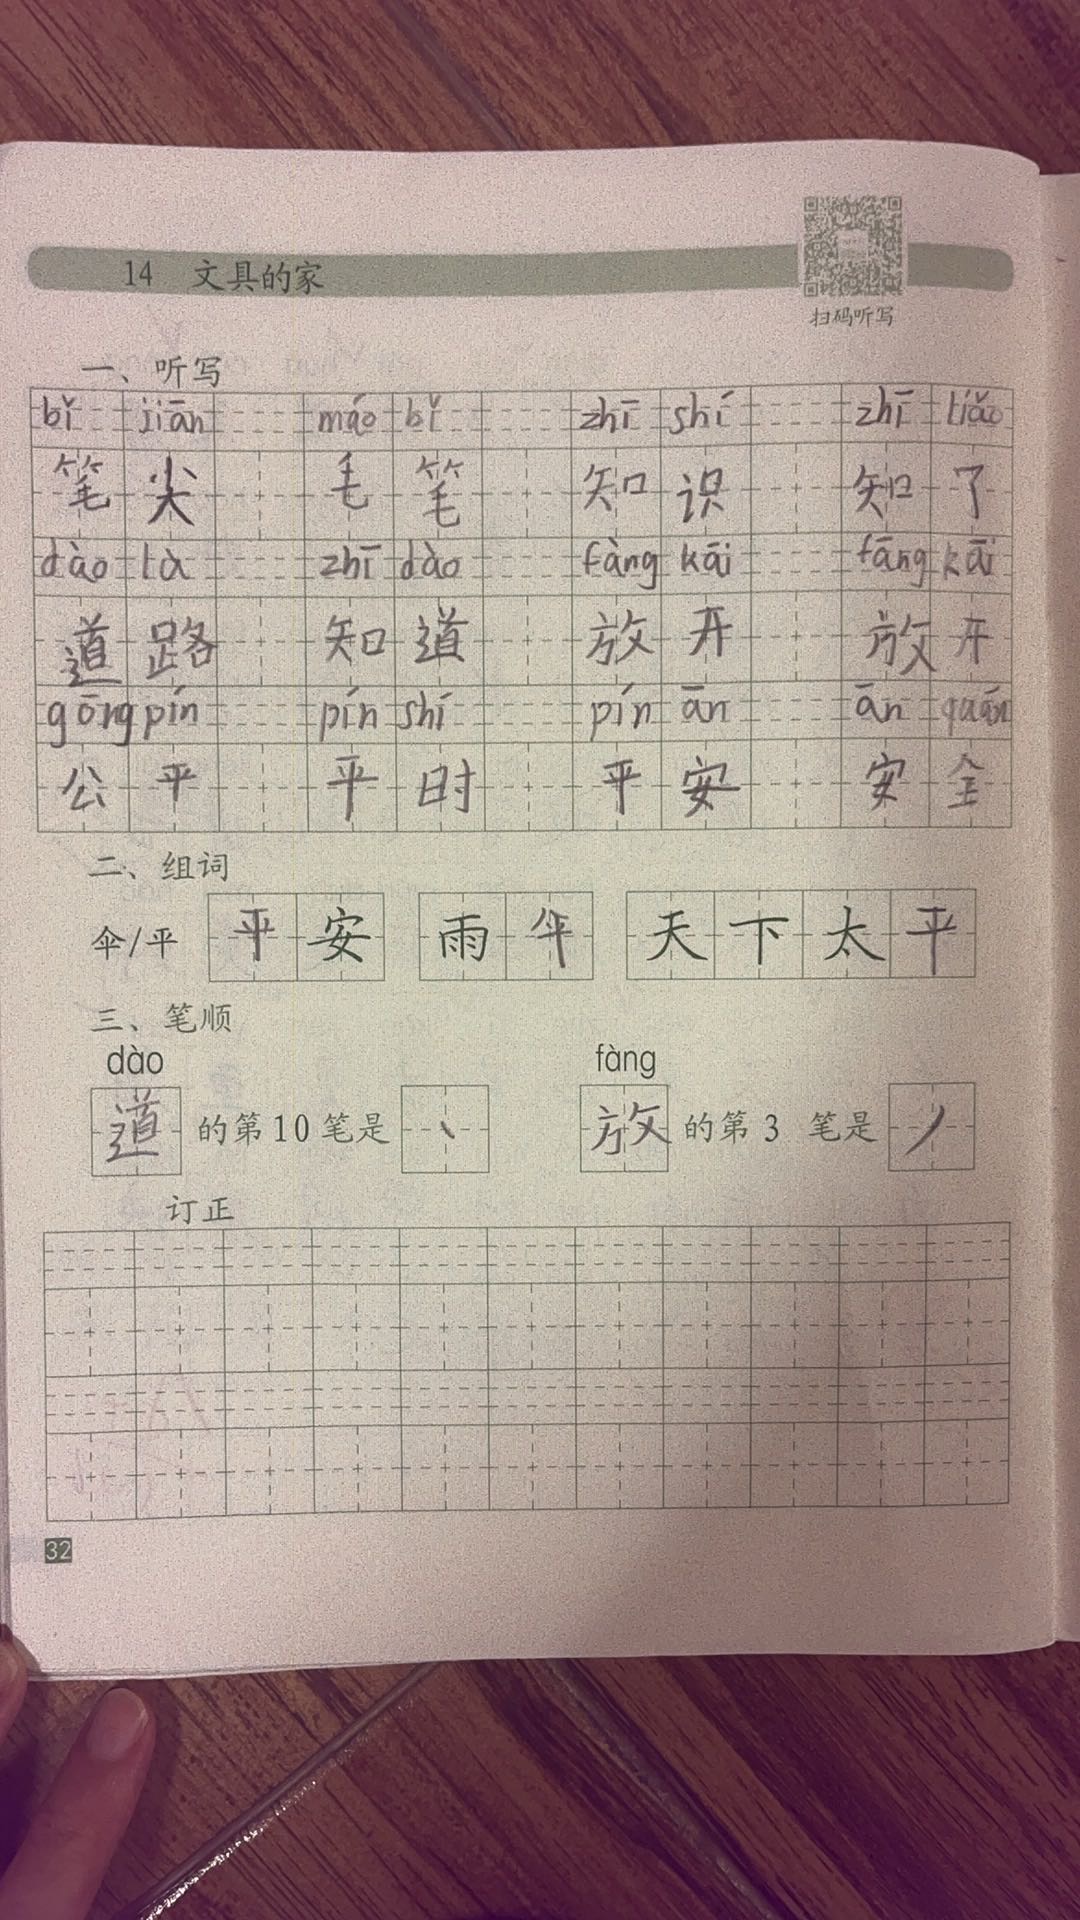 14 文具的家
扫码听写
一、听写
bǐ jiān máo bǐ zhī shí zhī liǎo
笔尖 毛笔 知识 知了
dào là zhī dào fàng kāi fāng kāi
道路 知道 放开 放开
gōng pín pín shí pín ān ān quán
公平 平时 平安 安全
二、组词
伞/平 平安 雨伞 天下太平
三、笔顺
dào fàng
道 的第10笔是 丶 放 的第3 笔是 丿
订正
32